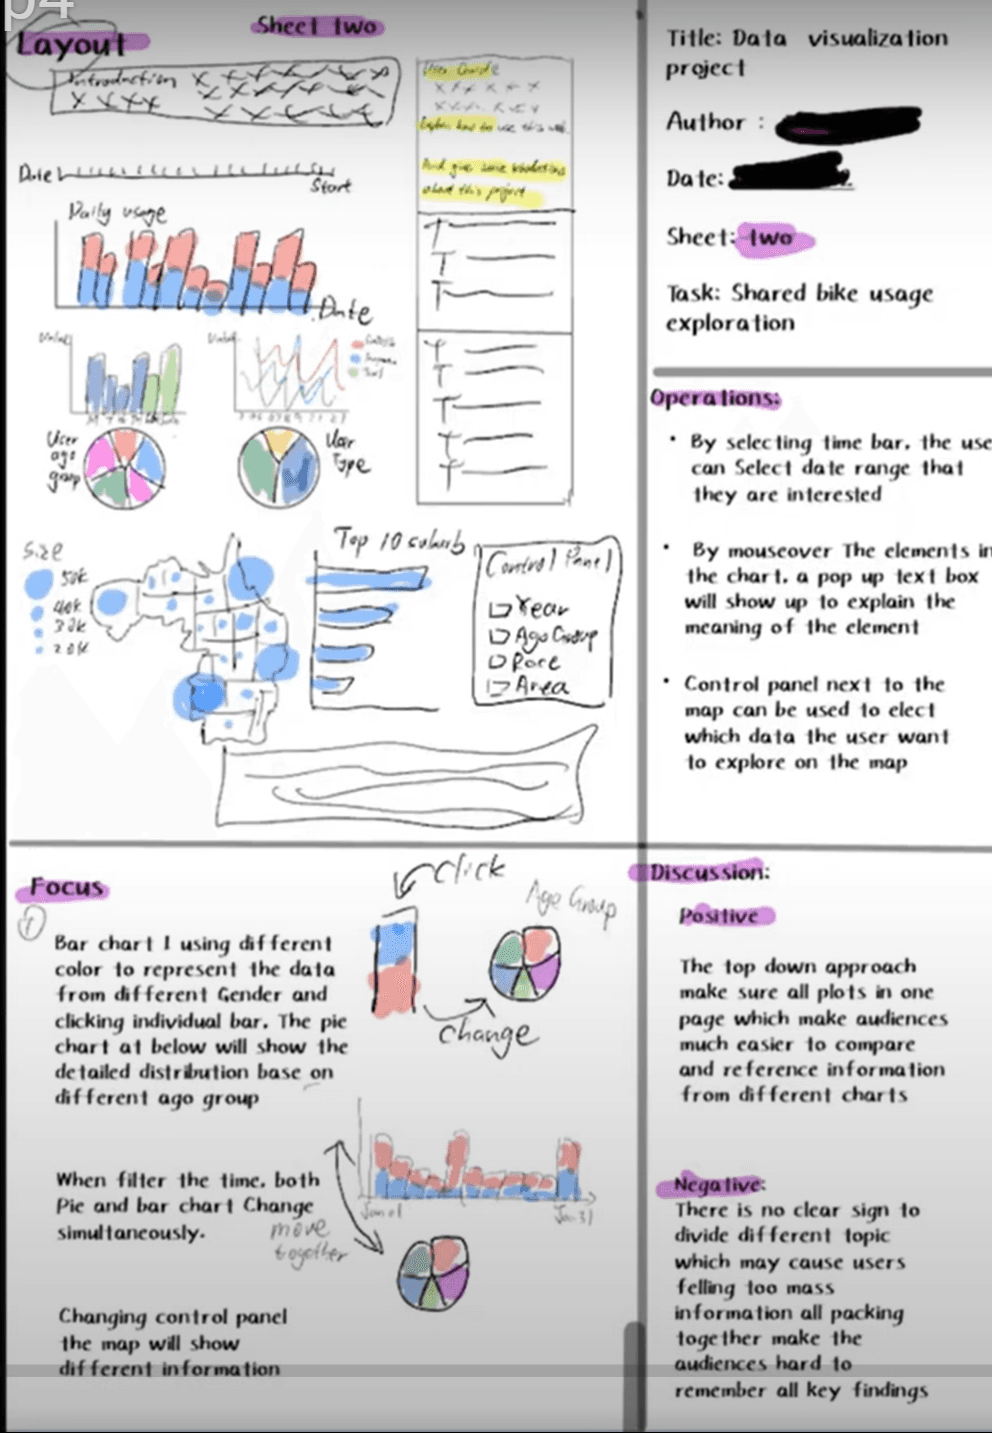 p4
Sheet two
Layout
Introduction
User Guide
Explain how to use this web.
And give some
about this project
Date
Start
Daily usage
Date
User
age
group
User
Type
Size
50k
40k
30k
20k
Top 10 suburb
Control Panel
Year
Age Group
Race
Area
Title: Data visualization
project
Author :
Date:
Sheet: two
Task: Shared bike usage
exploration
Operations:
• By selecting time bar, the use
can Select date range that
they are interested
• By mouseover The elements in
the chart, a pop up text box
will show up to explain the
meaning of the element
• Control panel next to the
map can be used to elect
which data the user want
to explore on the map
Focus
1
Bar chart 1 using different
color to represent the data
from different Gender and
clicking individual bar, The pie
chart at below will show the
detailed distribution base on
different ago group
When filter the time, both
Pie and bar chart Change
simultaneously.
Changing control panel
the map will show
different information
Click
Age Group
change
Jan 01
Jan 31
move
together
Discussion:
Positive
The top down approach
make sure all plots in one
page which make audiences
much easier to compare
and reference information
from different charts
Negative:
There is no clear sign to
divide different topic
which may cause users
felling too mass
information all packing
together make the
audiences hard to
remember all key findings